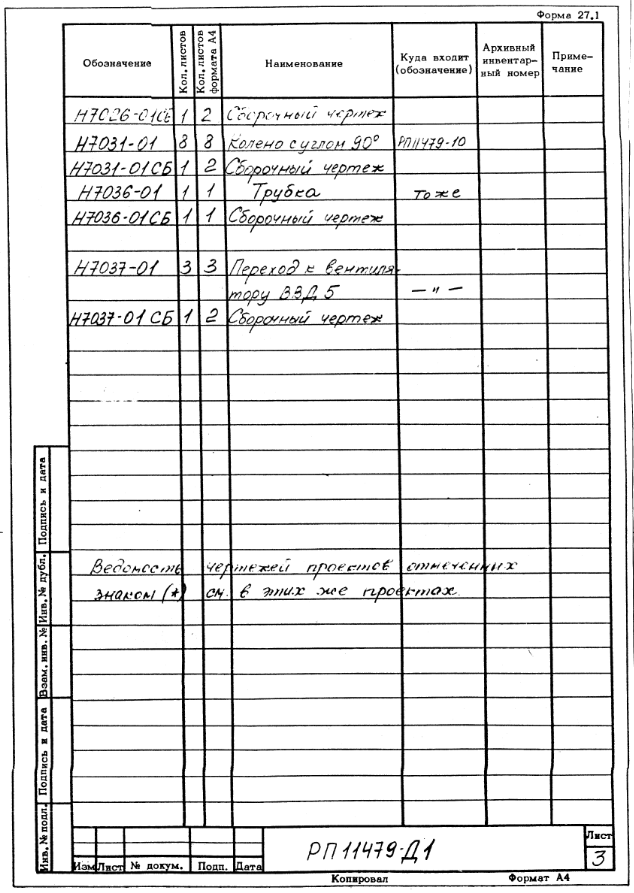 Форма 27.1
Обозначение Кол. листов Кол. листов формата А4 Наименование Куда входит (обозначение) Архивный инвентар-ный номер Приме-чание
Н7026-01СБ 1 2 Сборочный чертеж
Н7031-01 8 8 Колено с углом 90° РП11479-10
Н7031-01СБ 1 2 Сборочный чертеж
Н7036-01 1 1 Трубка то же
Н7036-01СБ 1 1 Сборочный чертеж
Н7037-01 3 3 Переход к вентиля-
тору ВВД 5 — " —
Н7037-01 СБ 1 2 Сборочный чертеж
Ведомость чертежей проектов отмеченных
знаком (*) см. в этих же проектах.
Подпись и дата
Инв. № дубл.
Взам. инв. №
Подпись и дата
Инв. № подл.
РП 11479-Д1
Лист
3
Изм Лист № докум. Подп. Дата
Копировал Формат А4